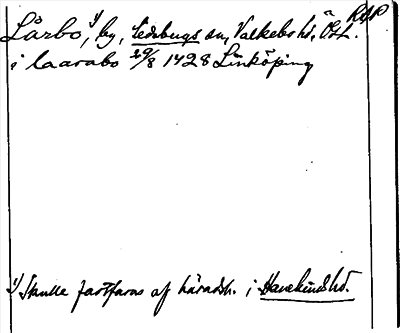 RAP
Lårbo, 1) by, Ledbergs sn, Valkebo hd, Östl.
i laarabo 29/8 1428 Linköping
1) Skulle fastfaras af häradsh. i Hanekinds hd.